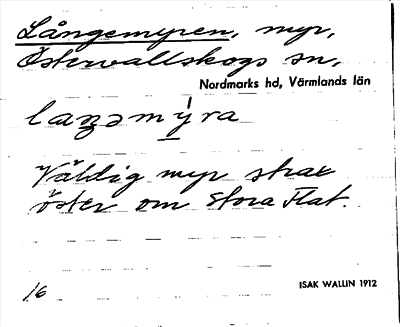 Långemyren, myr,
Östervallskogs sn,
Nordmarks hd, Värmlands län
Väldig myr strax
öster om Stora Flat.
16
ISAK WALLIN 1912